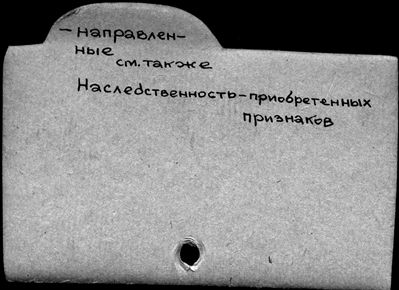 – направлен-
ные
см. также
Наследственность – приобретенных
признаков